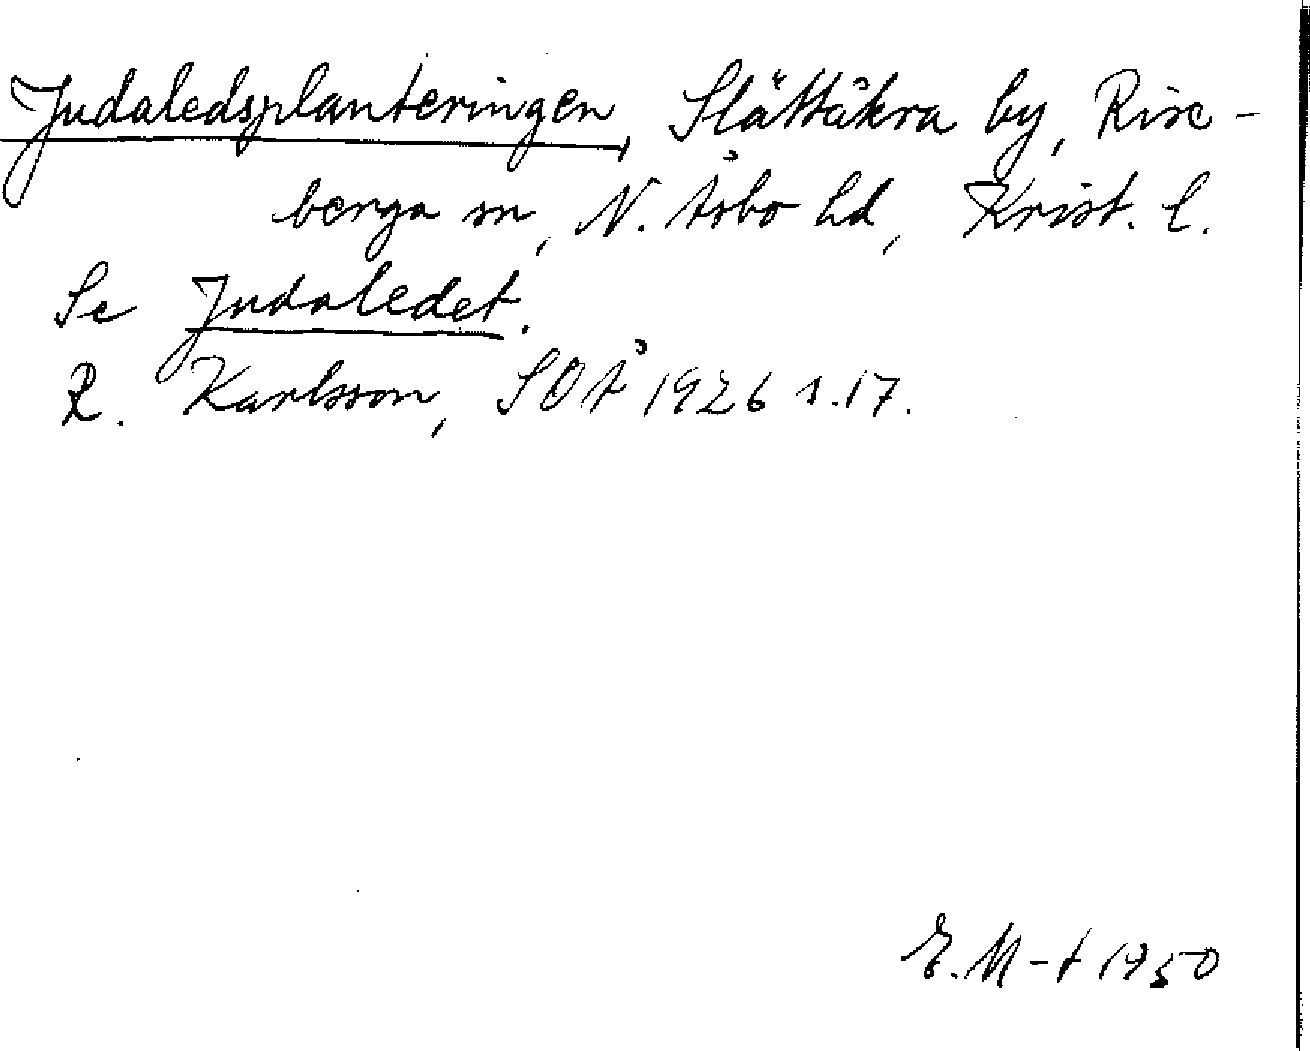 Judaledsplanteringen, Slättåkra by, Rise-
berga sn, N. Åsbo hd, Krist. l.
Se Judaledet.
R. Karlsson, SOÅ 1926 s.17.
E. M-t 1950